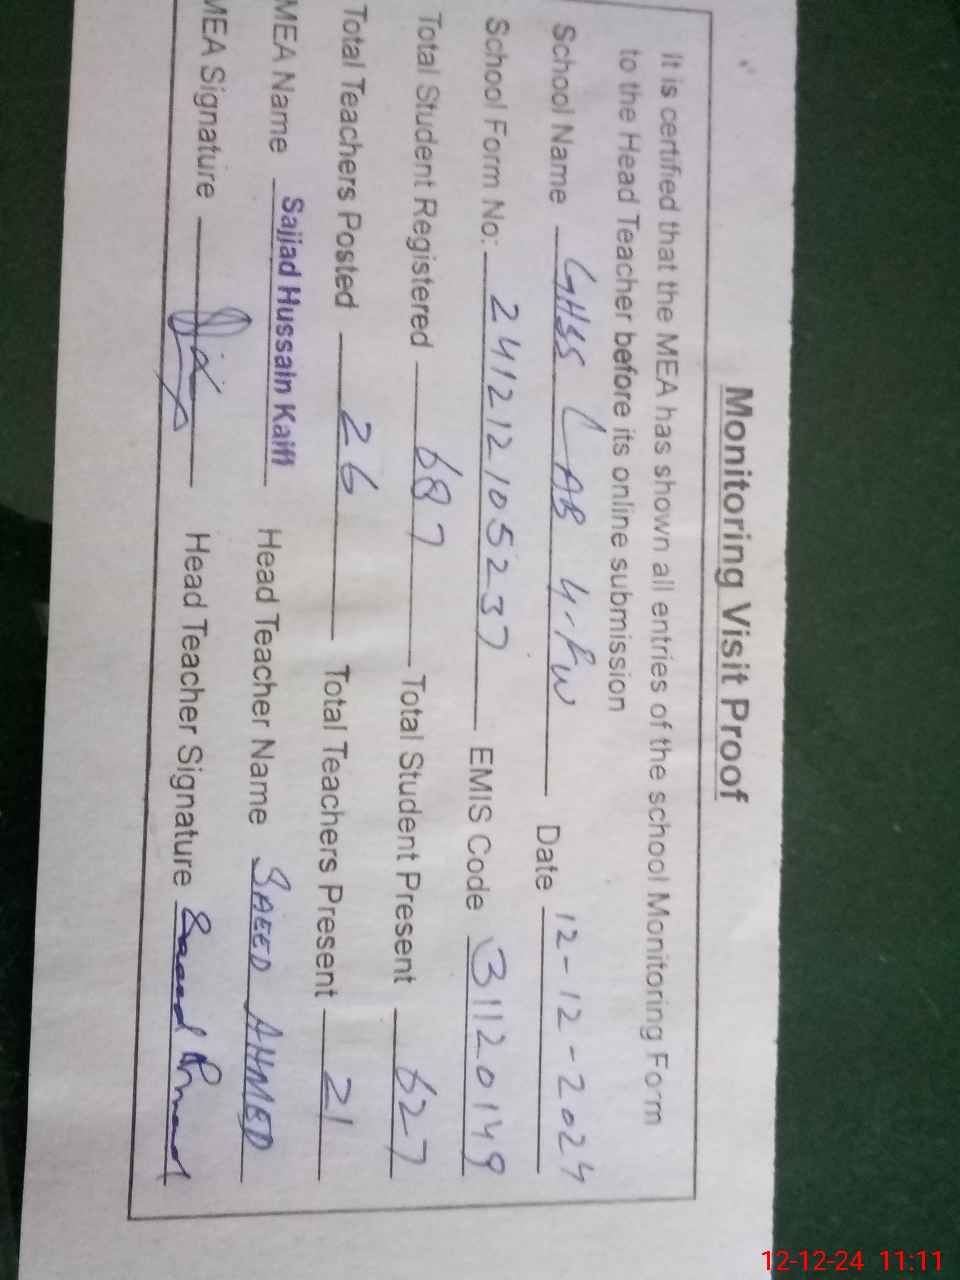 Monitoring Visit Proof
It is certified that the MEA has shown all entries of the school Monitoring Form
to the Head Teacher before its online submission
School Name GHSS LAB Date 12-12-2024
School Form No: 241212105237 EMIS Code 31120149
Total Student Registered 687 Total Student Present 627
Total Teachers Posted 26 Total Teachers Present 21
MEA Name Sajjad Hussain Kaifi Head Teacher Name SAEED AHMED
MEA Signature Head Teacher Signature Saeed Ahmed
12-12-24 11:11